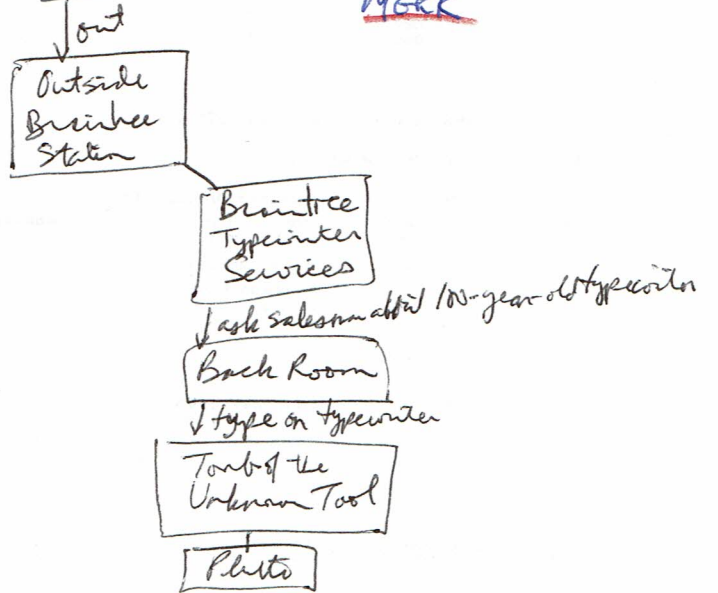 out
Outside
Braintree
Station
Braintree
Typewriter
Services
ask salesman about 100-year-old typewriter
Back Room
type on typewriter
Tomb of the
Unknown Tool
Pluto